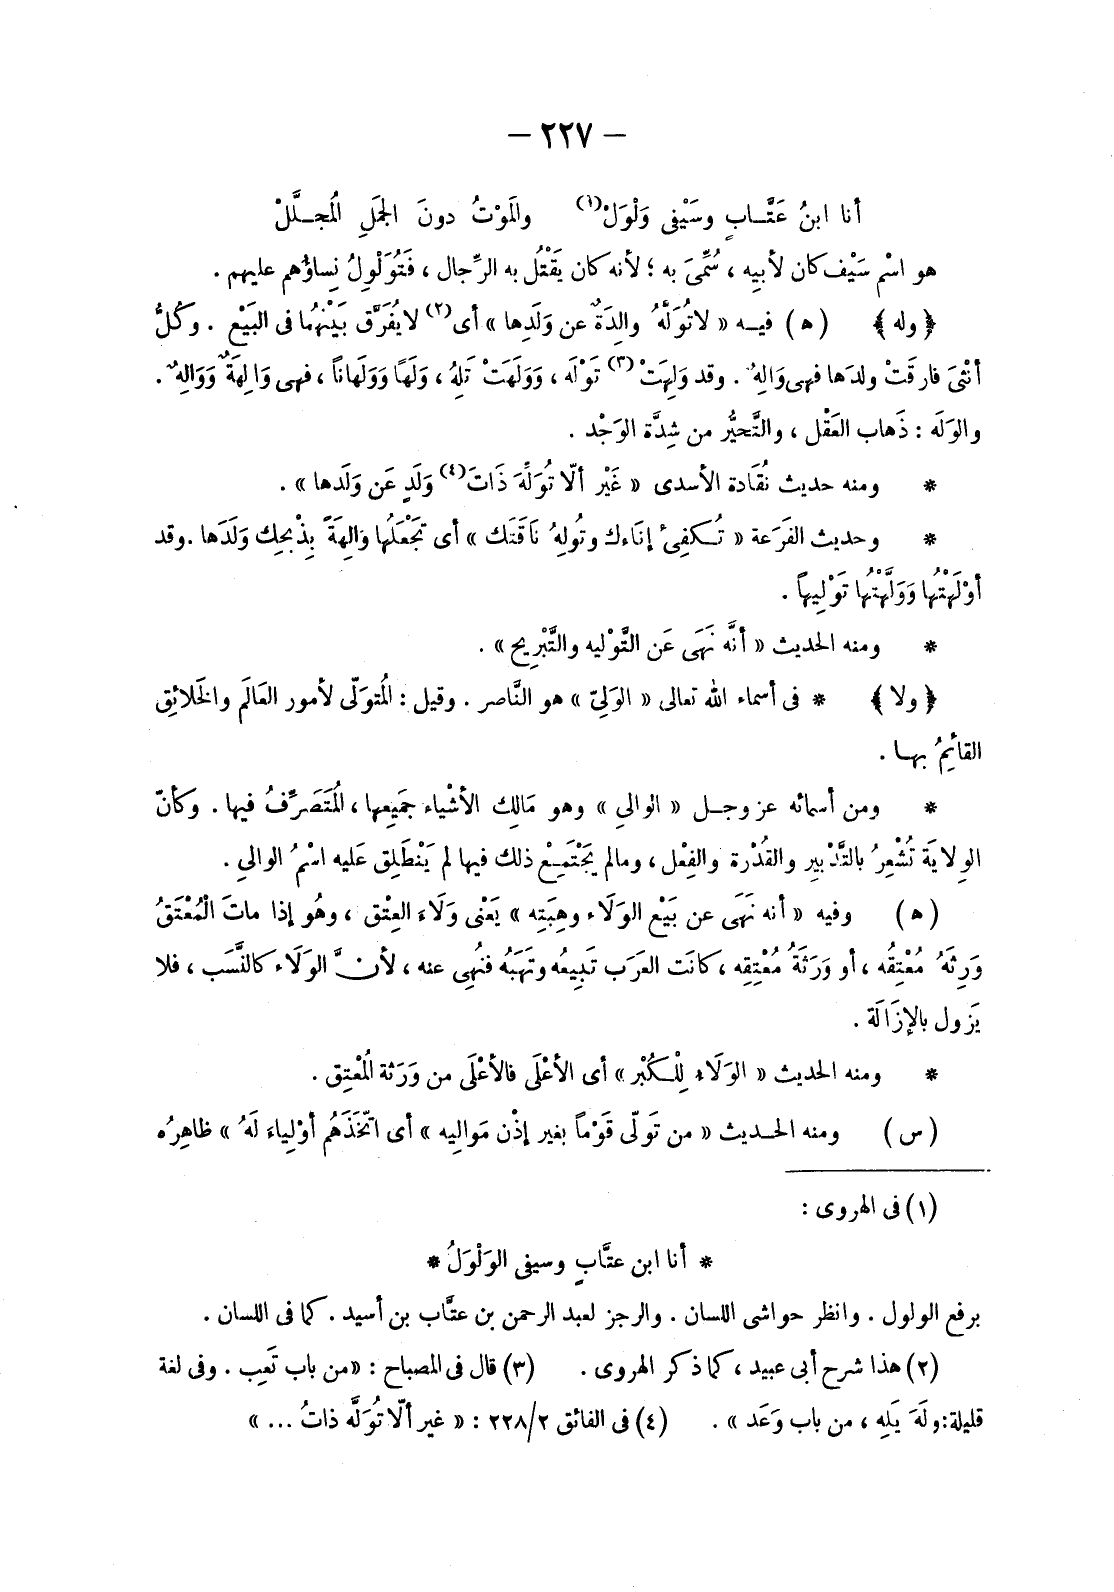 — ٢٢٧ —
أنا ابنُ عَتَّــابٍ وسَيْفى وَلْوَلْ(١) والمَوْتُ دونَ الجَمَلِ المُجـلَّلْ
هو اسْم سَيْف كان لأبيه ، سُمِّىَ به ؛ لأنه كان يَقْتُل به الرِّجال ، فَتُوَلْوِلُ نِساؤُهم عليهم .
﴿ وله ﴾ ( ه ) فيــه « لا تُوَلَّهُ والِدَةٌ عن وَلَدِها » أى(٢) لا يُفَرَّق بَيْنَهُما فى البَيْع . وكُلُّ
أنْثىَ فارقَتْ ولدَها فهى وَالِهٌ . وقد وَلِهَتْ(٣) تَوْلَه ، وَوَلَهَتْ تَلِهُ ، وَلَهًا وَوَلَهاناً ، فهى وَالِهَةٌ وَوَالِهٌ .
والوَلَه : ذَهاب العَقْل ، والتَّحيُّر من شِدَّة الوَجْد .
* ومنه حديث نُقَادة الأسدى « غَيْر ألّا تُوَلِّهَ ذَاتَ(٤) وَلَدٍ عَن وَلَدها » .
* وحديث الفَرَعة « تُـكفِئُ إنَاءك وتُولِهُ نَاقَتَك » أى تَجْعَلُها وَالِهَةً بِذْبحِك وَلَدَها . وقد
أوْلَهْتُها وَوَلَّهْتُها تَوْلِيهاً .
* ومنه الحديث « أنَّه نَهَى عَن التَّوْليه والتَّبْرِيح » .
﴿ ولا ﴾ * فى أسماء الله تعالى « الوَلِىّ » هو النَّاصر . وقيل : المُتوَلّى لأمور العَالَم والخَلائِق
القائِمُ بهـا .
* ومن أسمائه عز وجــل « الوالىِ » وهو مَالِك الأشْياء جَمِيعِها ، المُتَصَرِّفُ فيها . وكأنّ
الوِلايَة تُشْعِرُ بالتَّدْبيرِ والقُدْرة والفِعْل ، ومالم يَجْتَمِـعْ ذلك فيها لم يَنْطَلِق عَليه اسْمُ الوالىِ .
( ه ) وفيه « أنه نَهَى عن بَيْع الوَلَاء وهِبَتِه » يَعْنى وَلَاءَ العِتْق ، وهُو إذا ماتَ الْمُعْتَقُ
وَرِثَهُ مُعْتِقُه ، أو وَرَثَةُ مُعْتِقِه ، كانَت العَرَب تَبِيعُه وتَهَبُهُ فنُهِى عنه ، لأنَّ الوَلَاء كالنَّسَب ، فلا
يَزول بالإِزَالَة .
* ومنه الحديث « الوَلَاء لِلْـكُبْر » أى الأعْلَى فالأعْلَى من وَرَثة المُعْتِق .
( س ) ومنه الحـديث « من تَولّى قَوْماً بغير إذْن مَوالِيه » أى اتّخَذَهُم أوْلياءَ لَهُ » ظاهِرُه
(١) فى الهروى :
* أنا ابن عتَّابٍ وسيفى الوَلْوَلُ *
برفع الولول . وانظر حواشى اللسان . والرجز لعبد الرحمن بن عتَّاب بن أسيد . كما فى اللسان .
(٢) هذا شرح أبى عبيد ، كما ذكر الهروى . (٣) قال فى المصباح : «من باب تَعِب . وفى لغة
قليلة: ولَهَ يَلِه ، من باب وَعَد » . (٤) فى الفائق ٢٢٨/٢ : « غير ألّا تُوَلَّه ذاتُ ... »